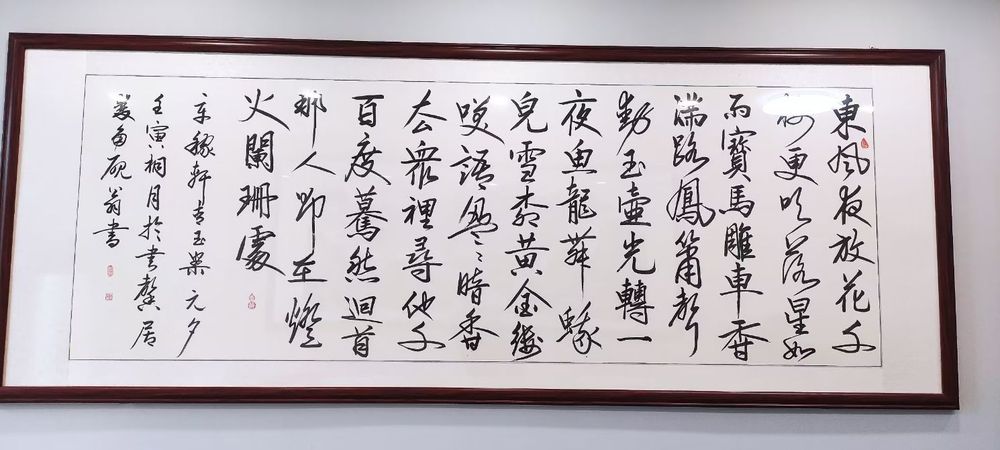 東風夜放花千
樹更吹落星如
雨寶馬雕車香
滿路鳳簫聲
動玉壺光轉一
夜魚龍舞蛾
兒雪柳黃金縷
咲語盈〻暗香
去眾裡尋他千
百度驀然迴首
那人卻在燈
火闌珊處
辛稼軒青玉案元夕
壬寅桐月於書馨居
硯翁書